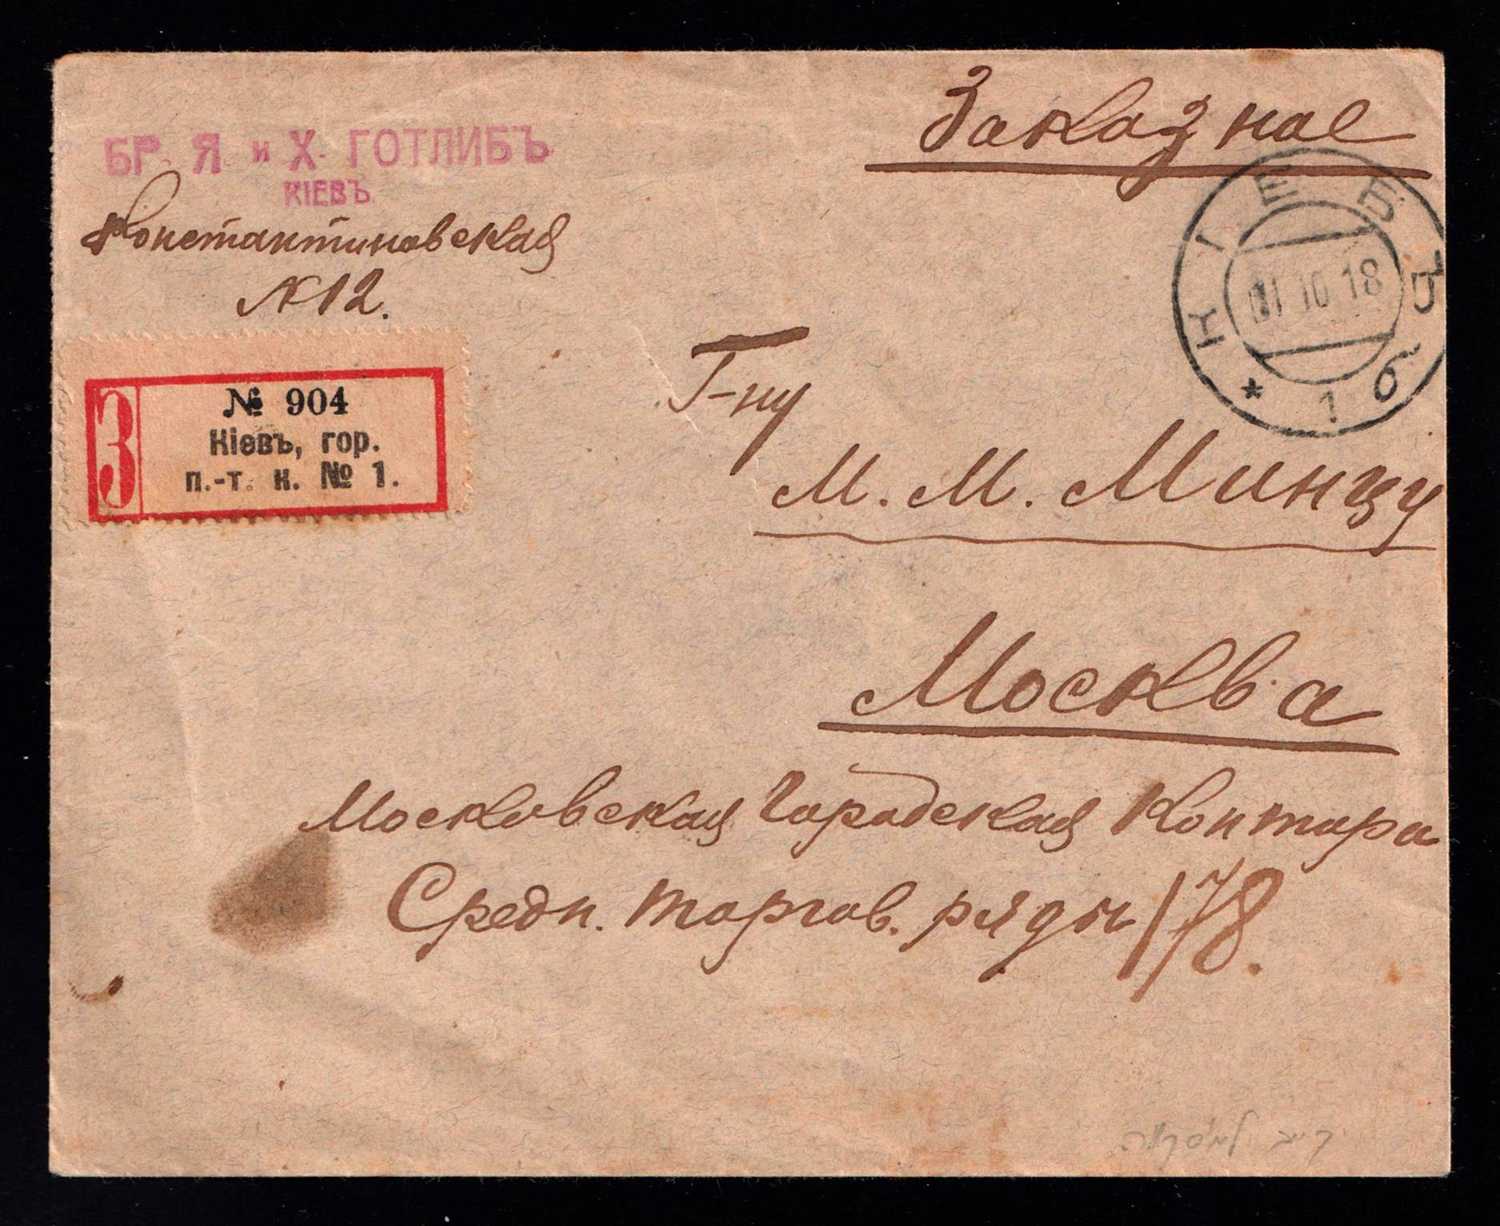 Заказное
БР. Я и Х. ГОТЛИБЪ
КІЕВЪ
Константиновская
№ 12.
КІЕВЪ
01 10 18
* 1 б
З
№ 904
Кіевъ, гор.
п.-т. к. № 1.
Г-ну
М. М. Минцу
Москва
Московская Городская Контора
Средн. торгов. ряды / 78.
קייב למוסקווה